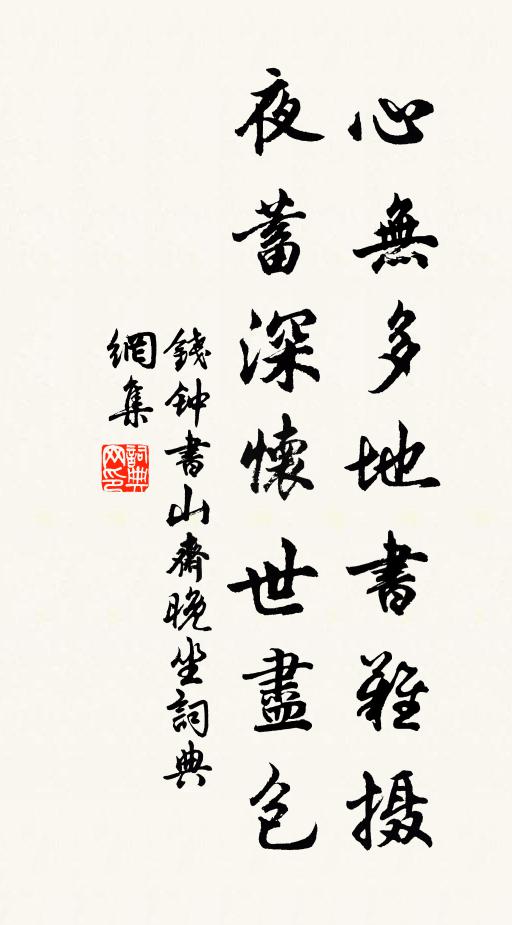 心無多地書難摄
夜蓄深懷世盡包
錢钟書山齋晚坐詞典
網集
詞典
网印